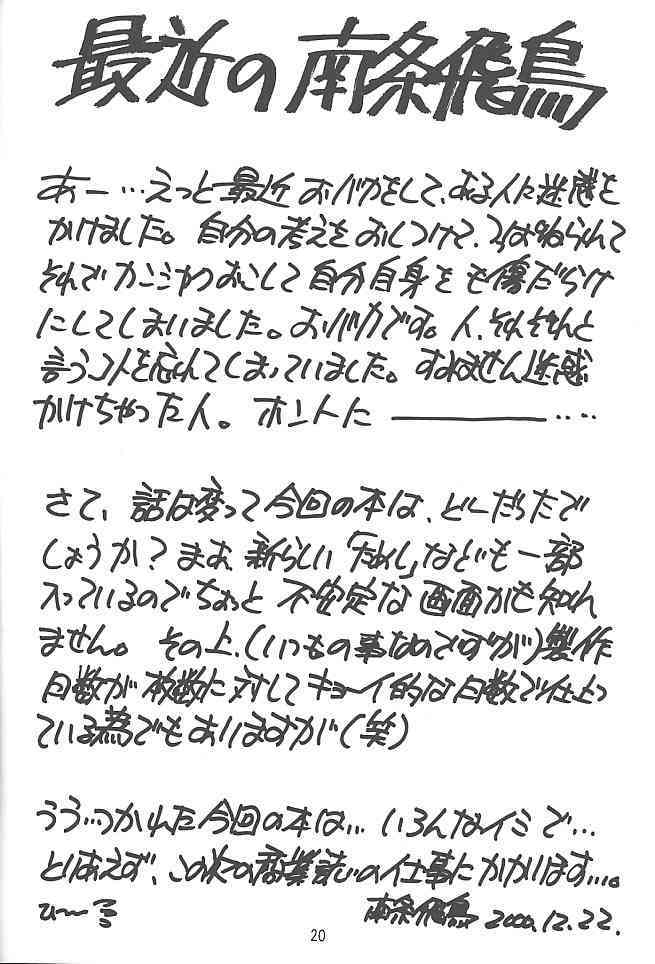 最近の南条飛鳥
あー…えっと最近おバカをして、ある人に迷惑を
かけました。自分の考えをおしつけて、つぱねられて
それでカンシャクおこして自分自身をも傷だらけ
にしてしまいました。おバカです。人、それぞれと
言うコトを忘れてしまっていました。すみません迷惑
かけちゃった人。ホントに ————‥‥
さて、話は変って今回の本は、どーだったで
しょうか?まあ、新らしい「ためし」なども一部
入っているのでちょっと不安定な画面かも知れ
ません。その上、(いつもの事なのですが)製作
日数が枚数に対してキョーイ的な日数で仕上っ
ている為でもありますが(笑)
うう…つかれた今回の本は… いろんなイミで…
とりあえず、この次の商業誌の仕事にかかります…。
ひ〜
南条飛鳥 2000.12.22.
20